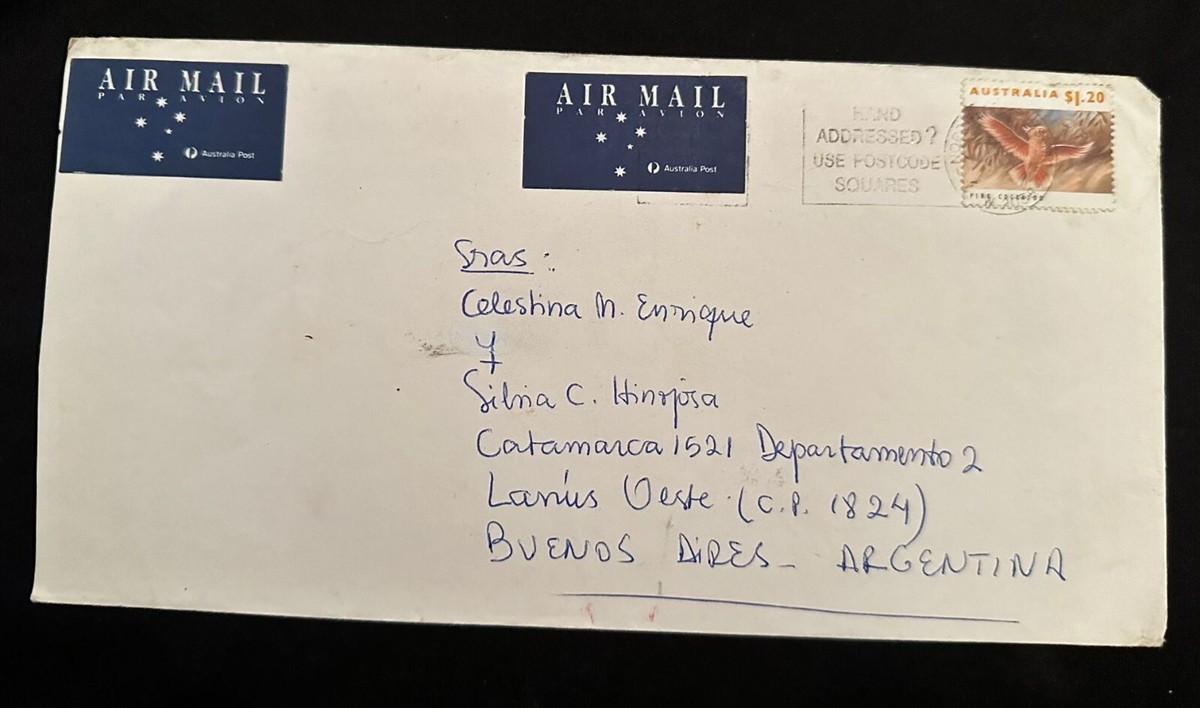 AIR MAIL
PAR AVION
Australia Post
AIR MAIL
PAR AVION
Australia Post
HAND
ADDRESSED?
USE POSTCODE
SQUARES
AUSTRALIA $1.20
PINK COCKATOO
Sras:
Celestina M. Enrique
y
Silvia C. Hinojosa
Catamarca 1521 Departamento 2
Lanús Oeste (C.P. 1824)
BUENOS AIRES - ARGENTINA